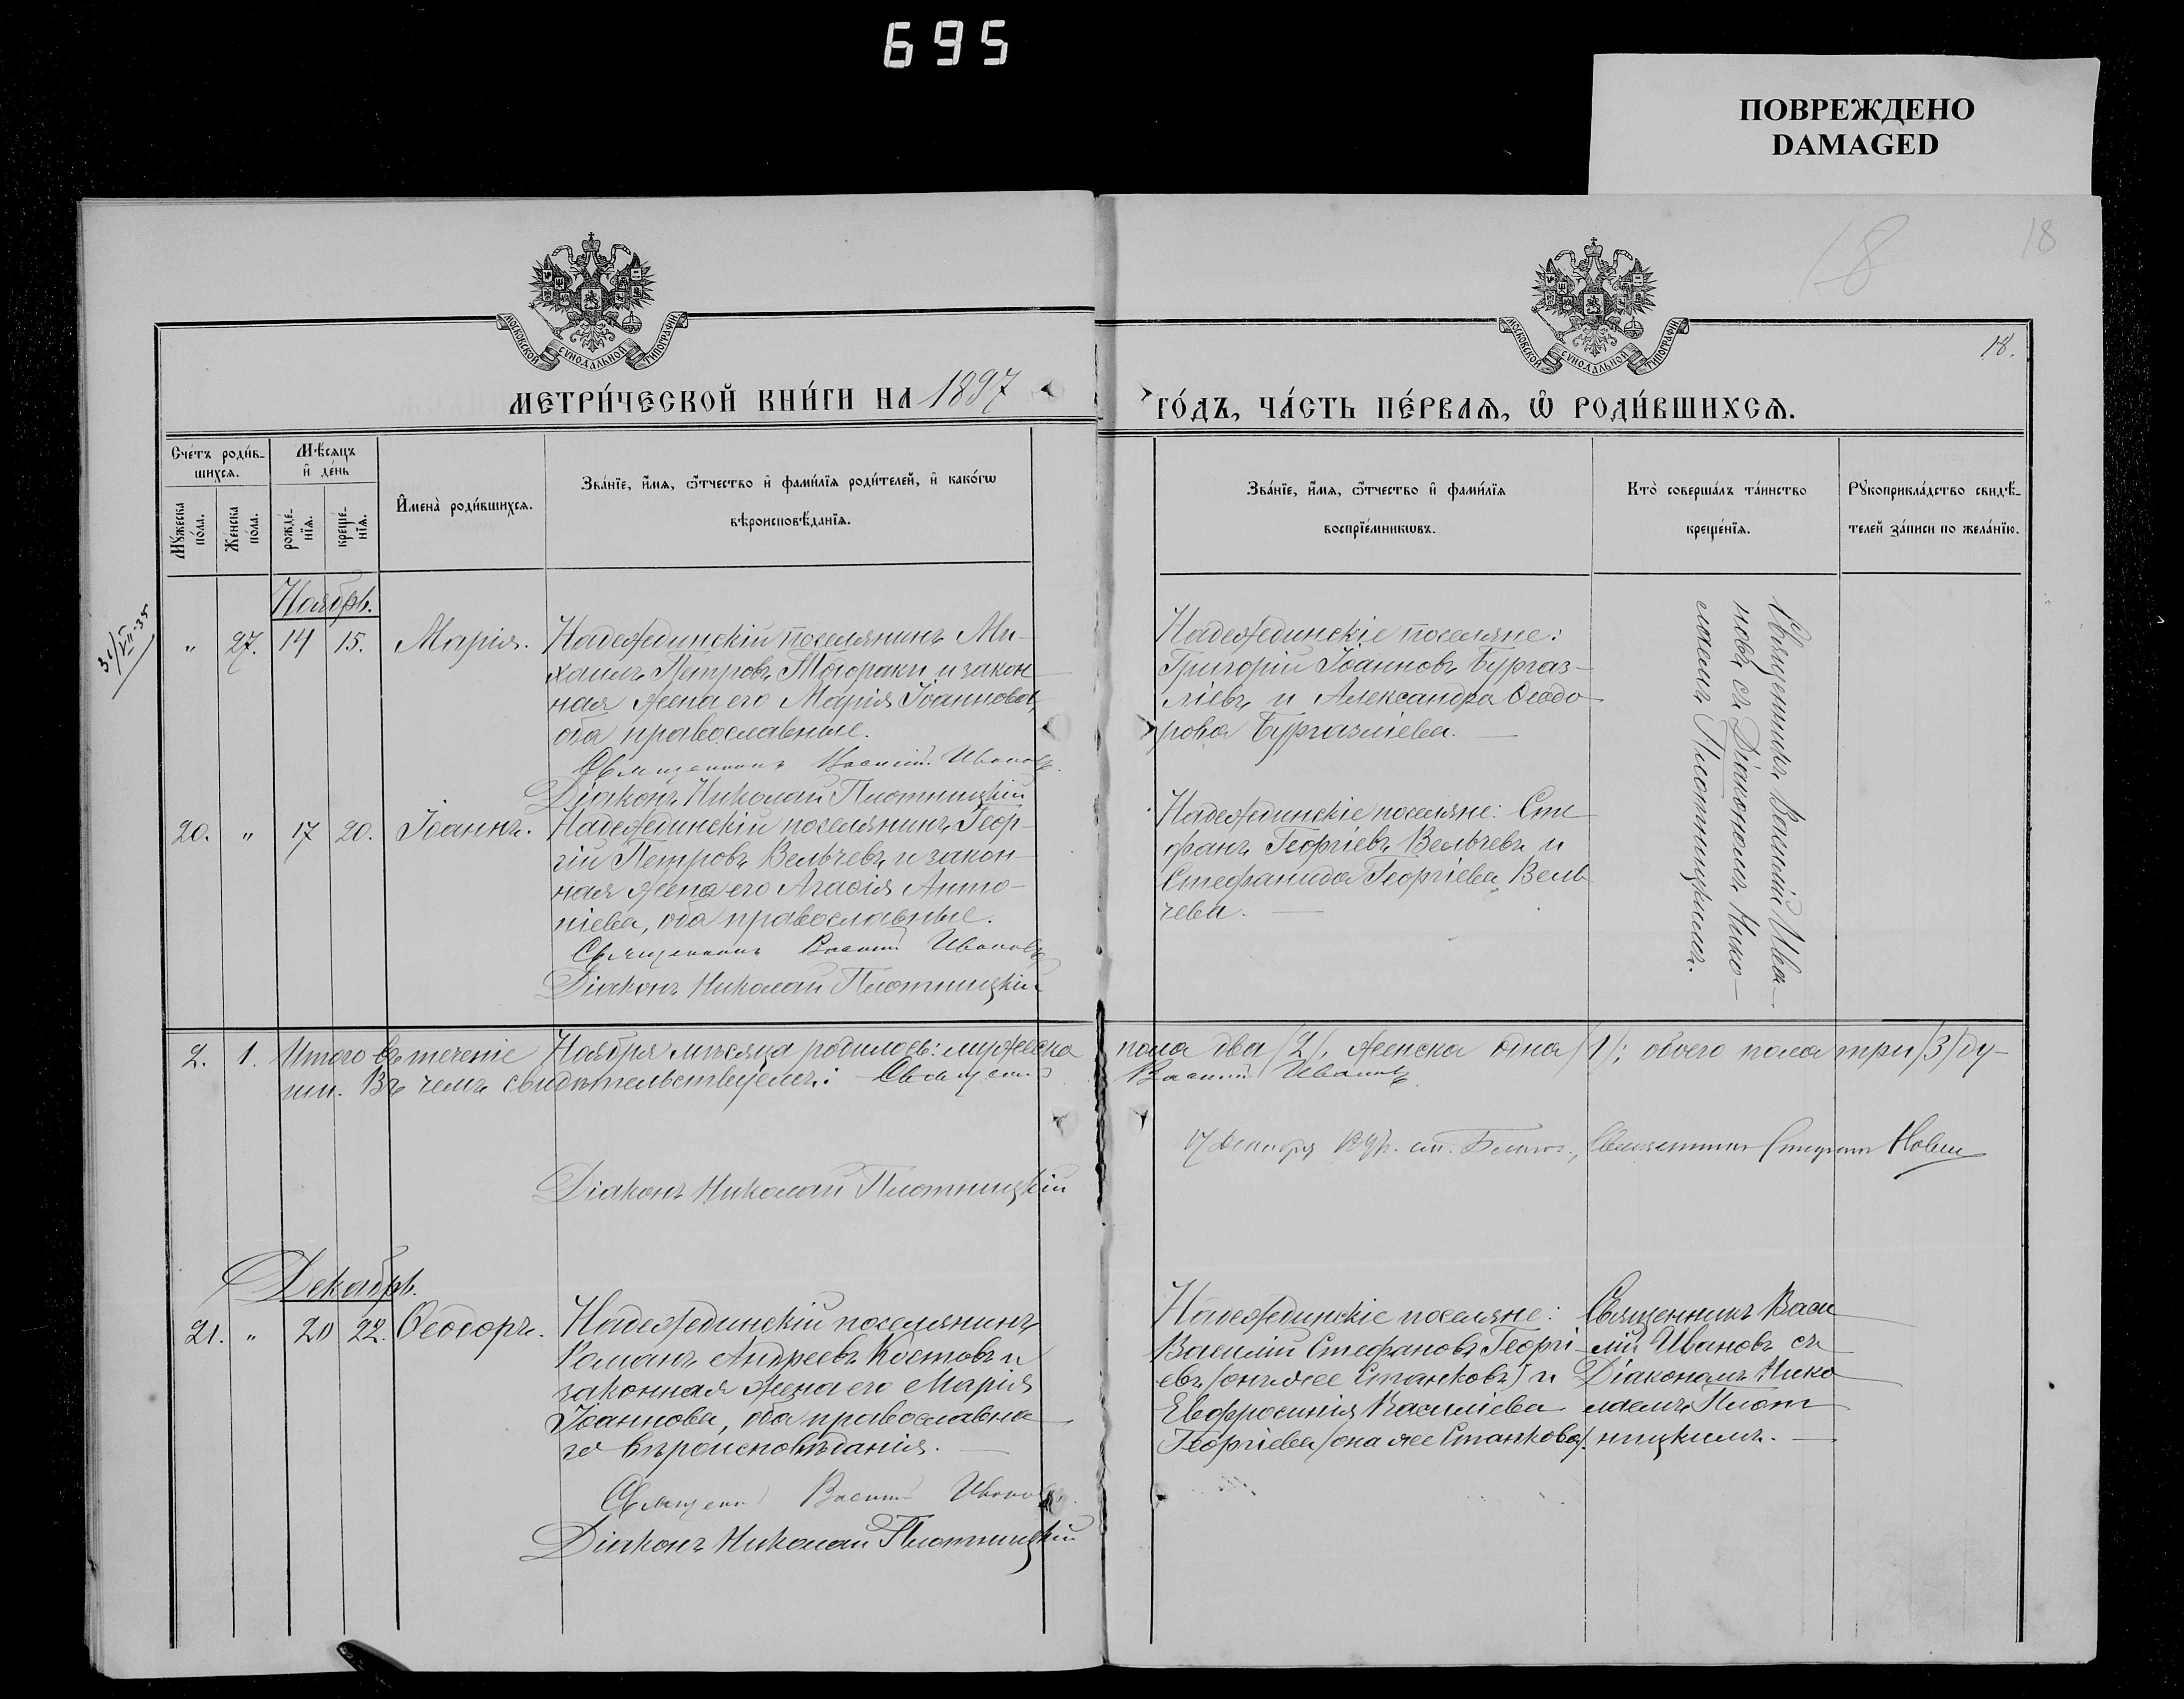 695
ПОВРЕЖДЕНО
DAMAGED
18
18
18.
МОСКОВСКОЙ СѴНОДАЛЬНОЙ ТИПОГРАФІИ
МОСКОВСКОЙ СѴНОДАЛЬНОЙ ТИПОГРАФІИ
МЕТРИ́ЧЕСКОЙ КНИ́ГИ НА 1897
ГО́ДЪ, ЧА́СТЬ ПЕ́РВАѦ, Ѽ РОДИ́ВШИХСѦ.
Сче́тъ роди́в-
шихсѧ.
Мꙋ́жеска
по́ла.
Же́нска
по́ла.
Мѣ́сѧцъ
и҆ де́нь
рожде́-
нїѧ.
креще́-
нїѧ.
И҆мена̀ роди́вшихсѧ.
Зва́нїе, и҆́мѧ, ѻ҆́тчество и҆ фами́лїѧ роди́телей, и҆ како́гѡ
вѣроисповѣ́данїѧ.
Зва́нїе, и҆́мѧ, ѻ҆́тчество и҆ фами́лїѧ
воспрїе́мникѡвъ.
Кто̀ соверша́лъ та́инство
креще́нїѧ.
Рꙋкоприкла́дство свидѣ́-
телей за́писи по жела́нїю.
Ноябрь.
31/VII-35
" 27. 14 15. Марія.
Надеждинскій поселянинъ Ми-
хаилъ Петровъ Модораки и закон
ная жена его Марія Іоаннова,
оба православные.
Священникъ Василій Ивановъ.
Діаконъ Николай Плотницкій
Надеждинскіе поселяне:
Григорій Іоанновъ Бургаз-
ліевъ и Александра Ѳеодо-
рова Бургазліева.
Священникъ Василій Ива-
новъ съ Діакономъ Нико-
лаемъ Плотницкимъ.
20. " 17 20. Іоаннъ.
Надеждинскій поселянинъ Геор-
гій Петровъ Вельчевъ и закон-
ная жена его Агаѳія Анто-
ніева, оба православные.
Священникъ Василій Ивановъ
Діаконъ Николай Плотницкій
Надеждинскіе поселяне: Сте
фанъ Георгіевъ Вельчевъ и
Стефанида Георгіева Вель
чева.
2. 1. Итого въ теченіе Ноября мѣсяца родилось: мужеска пола два /2/, женска одна /1/; обоего пола три /3/ ду-
ши. Въ чемъ свидѣтельствуемъ: Священ. Василій Ивановъ
Діаконъ Николай Плотницкій
17 Декабря 1897. Священникъ
Декабрь.
21. " 20 22. Ѳеодоръ.
Надеждинскій поселянинъ
Романъ Андреевъ Костовъ и
законная жена его Марія
Іоаннова, оба православна
го вѣроисповѣданія.
Священ. Василій Ивановъ.
Діаконъ Николай Плотницкій
Надеждинскіе поселяне:
Василій Стефановъ Георгі-
евъ /онъ же Станковъ/ и
Евфросинія Василіева
Георгіева /она же Станкова/.
Священникъ Васи
лій Ивановъ съ
Діакономъ Нико
лаемъ Плот
ницкимъ.